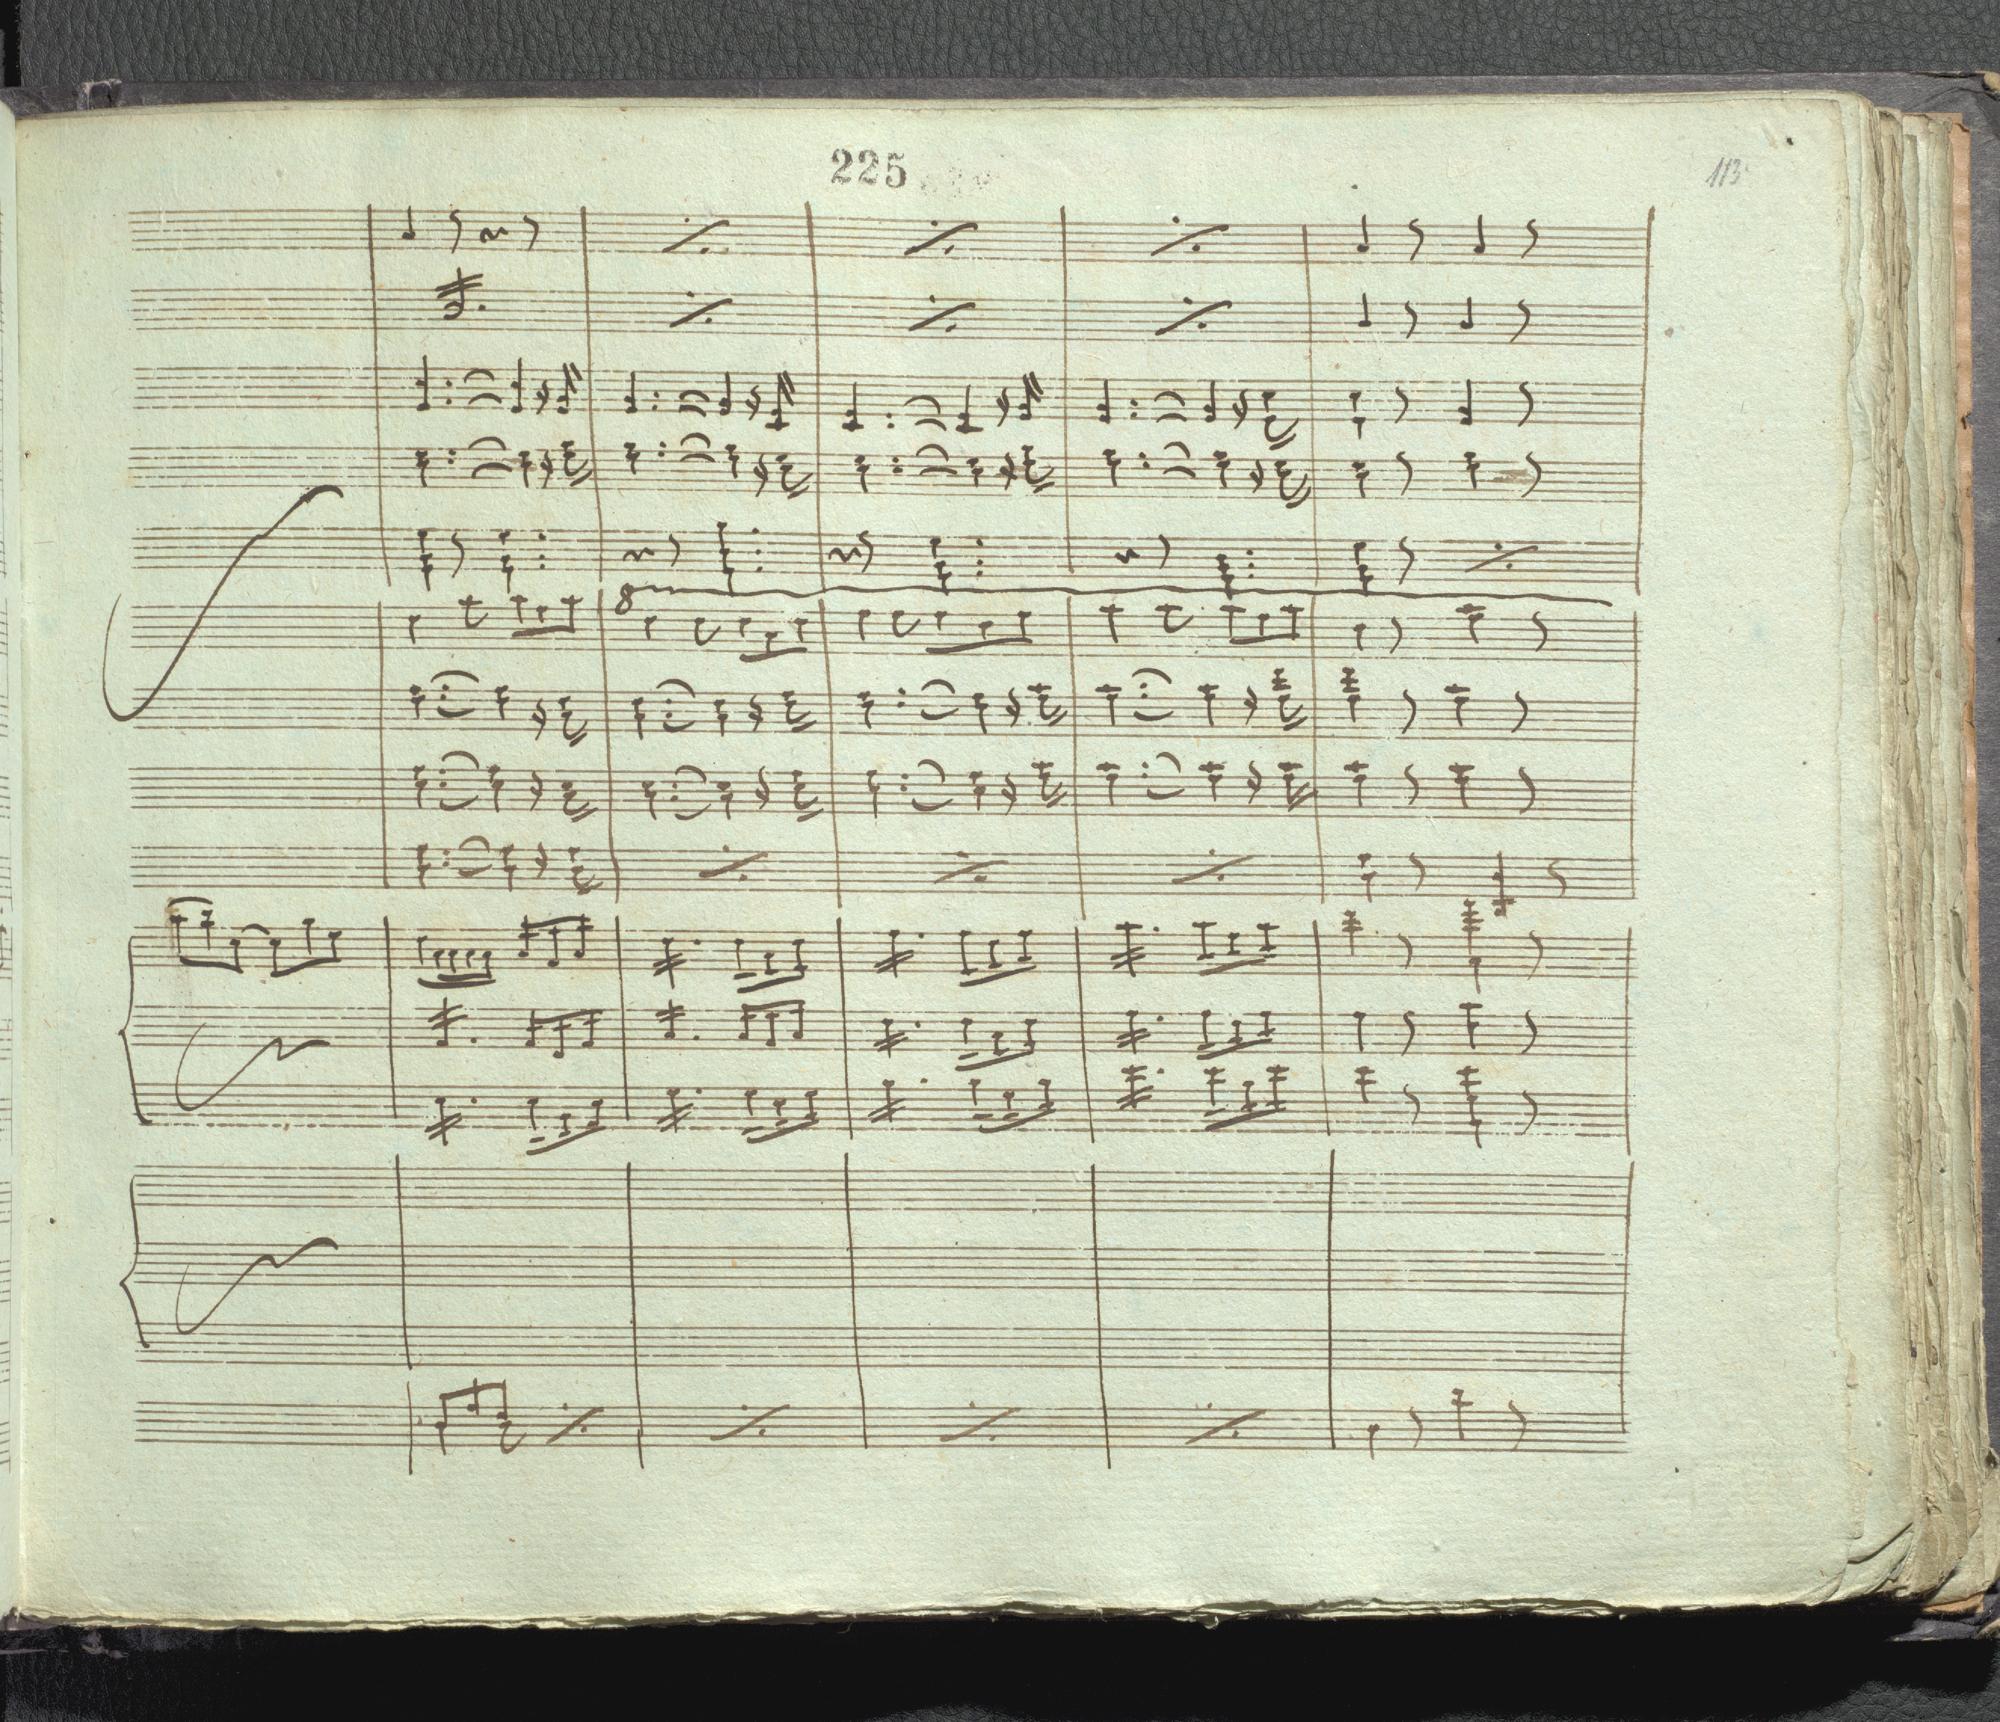 225
113
8